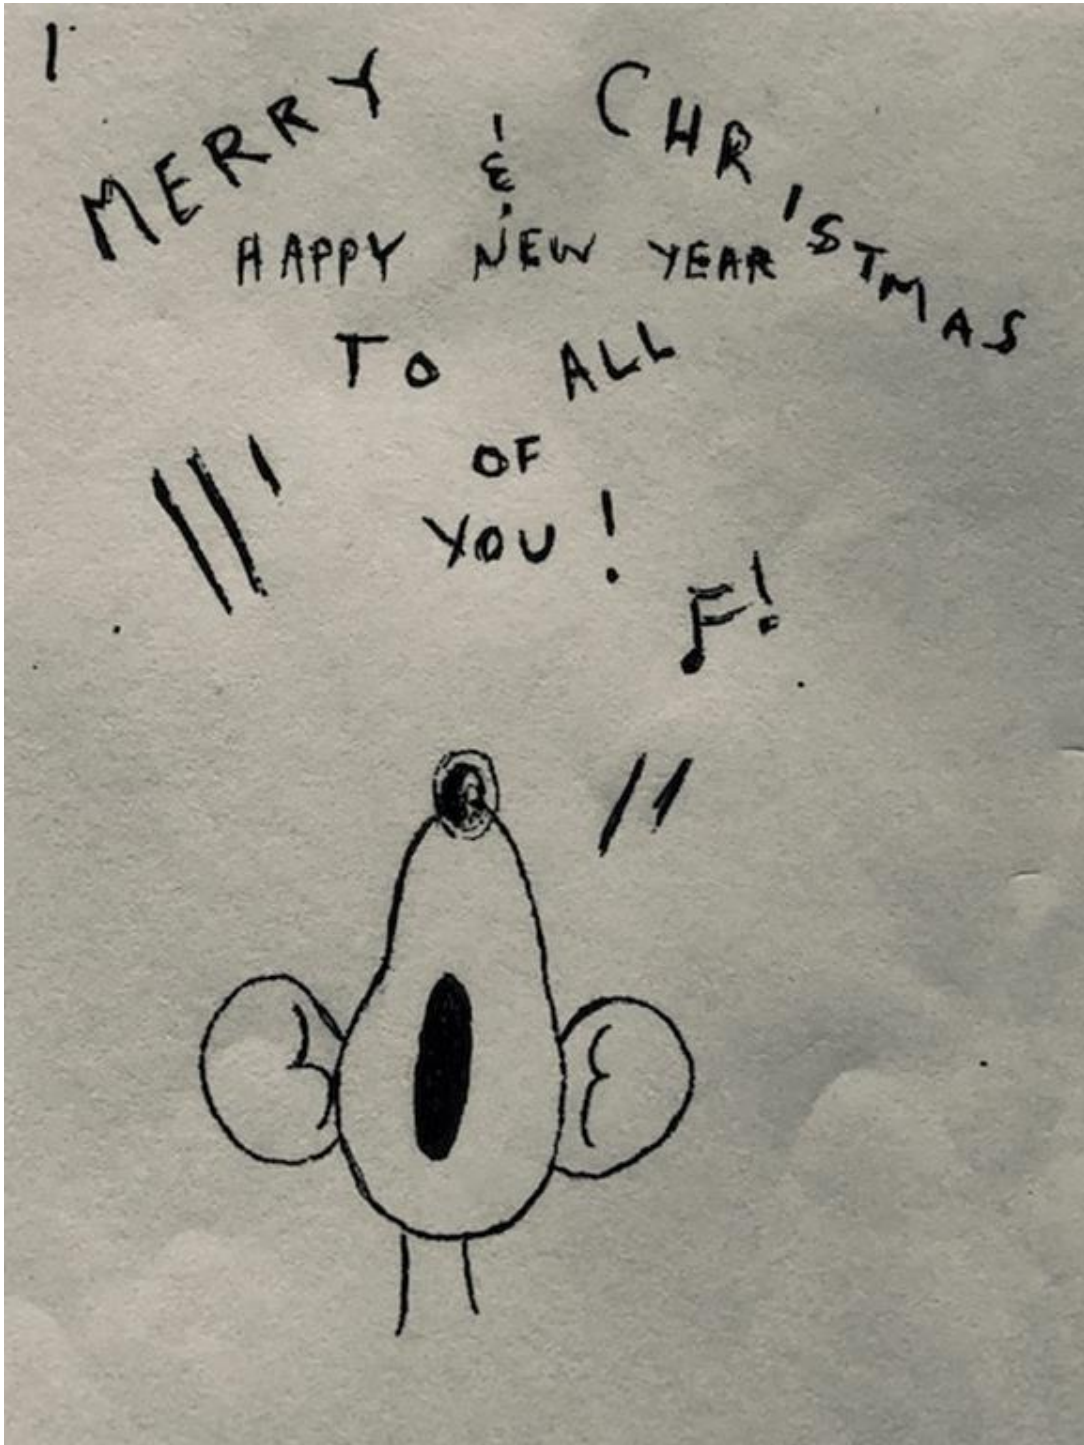 MERRY CHRISTMAS
&
HAPPY NEW YEAR
TO ALL
OF
YOU!